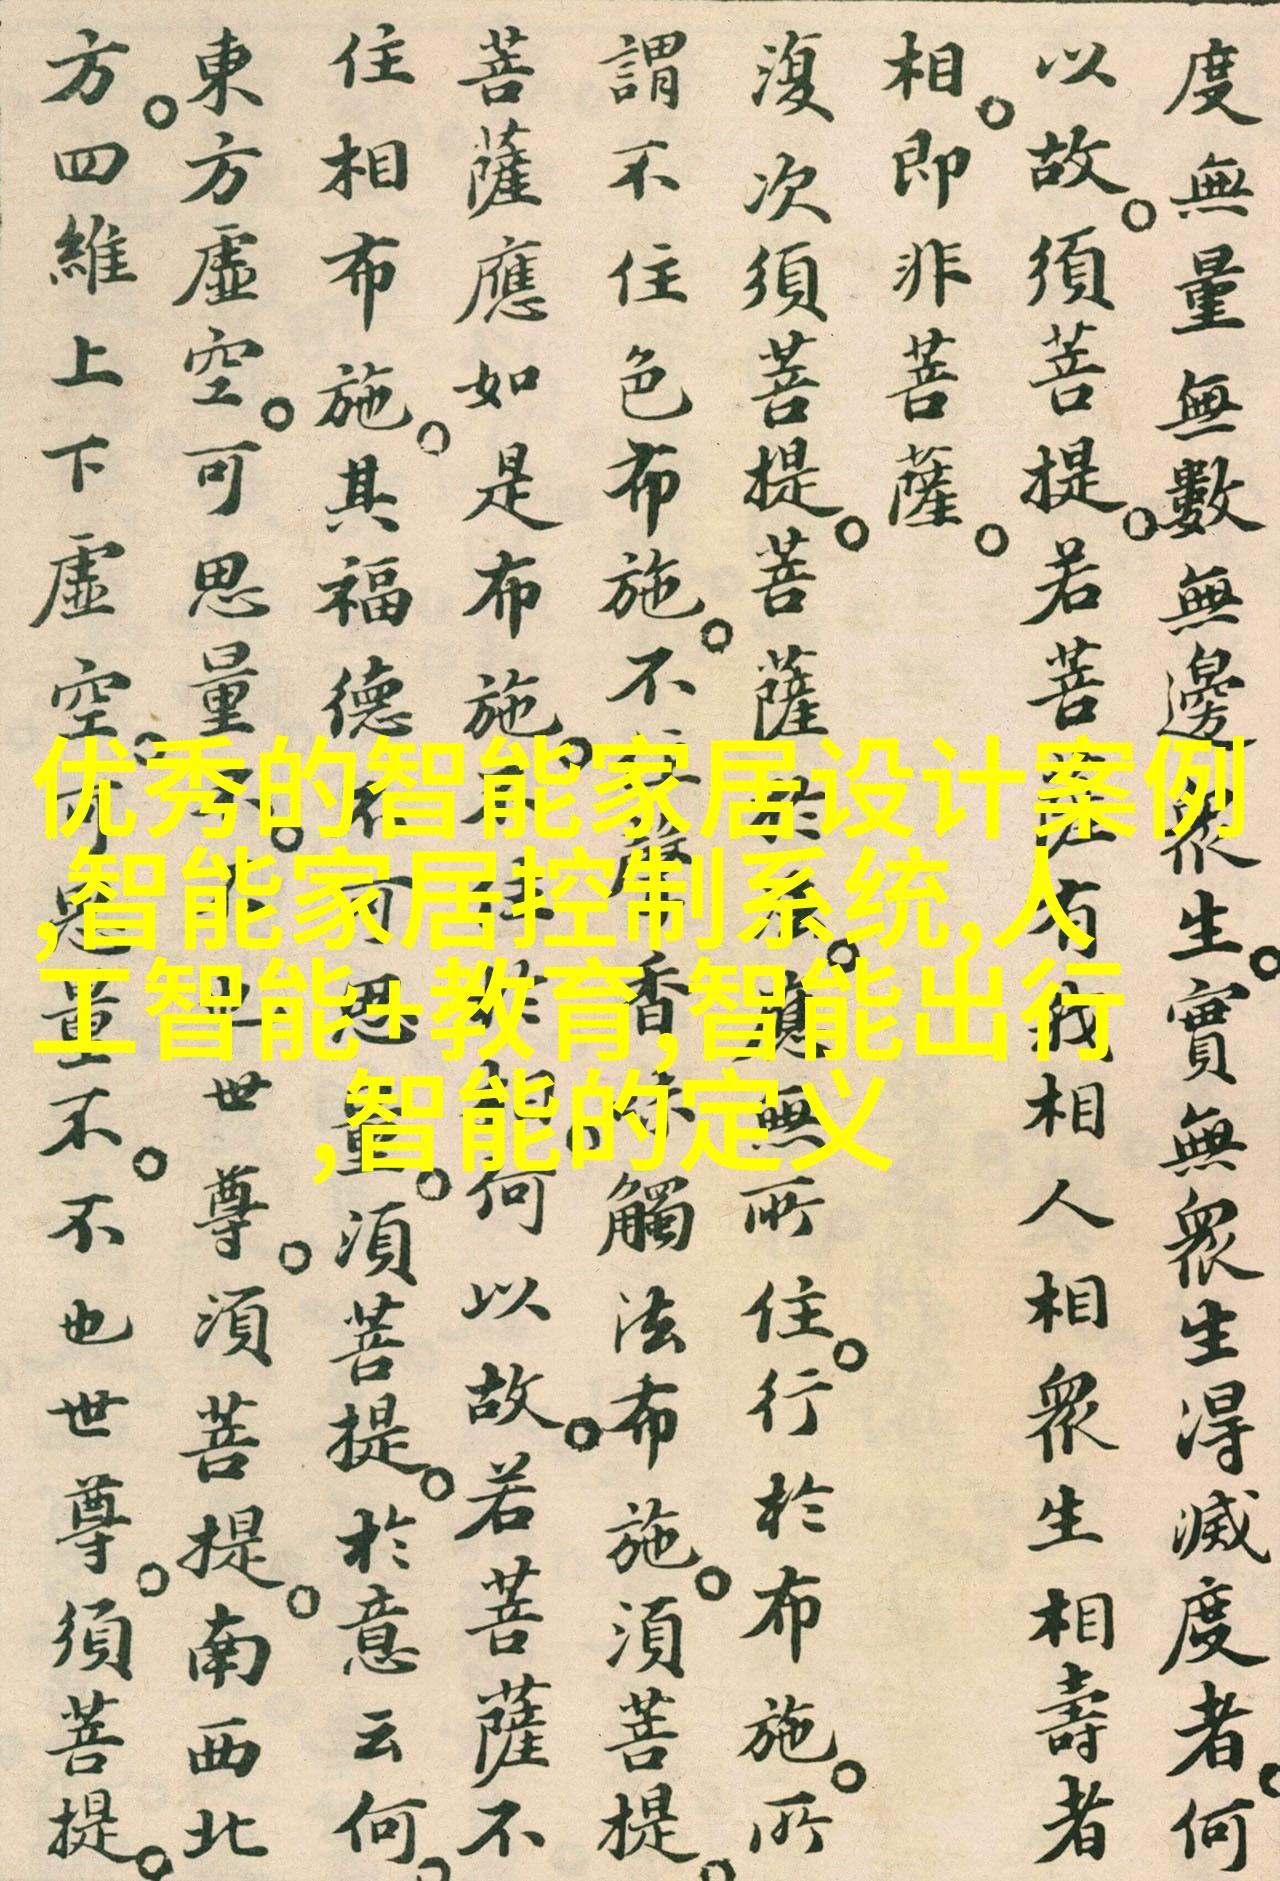 度無量無數無邊眾生。實無眾生得滅度者。何
以故。須菩提。若菩薩有我相人相眾生相壽者
相。即非菩薩。
復次須菩提。菩薩於法。應無所住。行於布施。所
謂不住色布施。不住聲香味觸法布施。須菩提。
菩薩應如是布施。不住於相。何以故。若菩薩不
住相布施。其福德不可思量。須菩提。於意云何。
東方虛空。可思量不。不也世尊。須菩提。南西北
方。四維上下虛空。可思量不。不也世尊。須菩提。
优秀的智能家居设计案例
,智能家居控制系统,人
工智能+教育,智能出行
,智能的定义